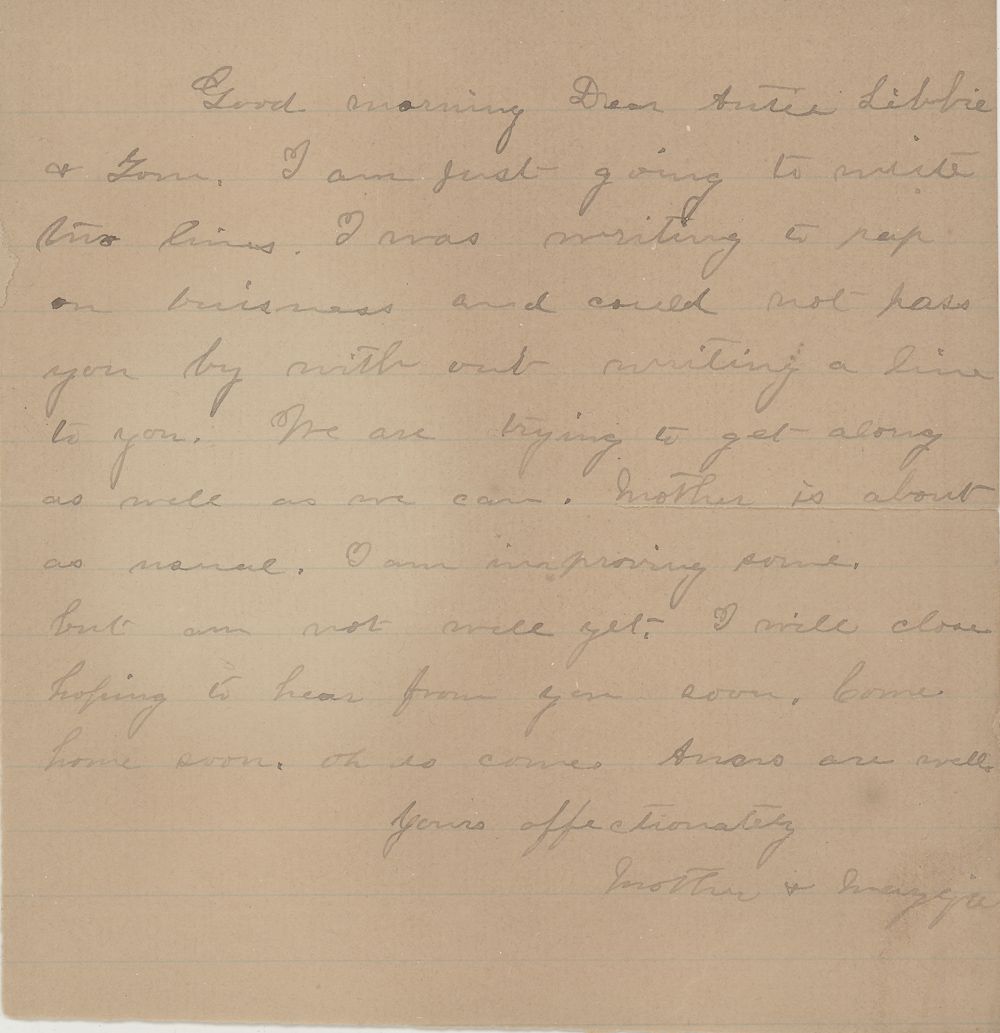 Good morning Dear Antie Libbie
& Tom. I am just going to write
two lines. I was writing to pap
on buisness and could not pass
you by with out writing a line
to you. We are trying to get along
as well as we can. Mother is about
as usual. I am improving some.
but am not well yet. I will close
hoping to hear from you soon. Come
home soon. oh do come. are well.
Yours affectionately
Mother & Maggie